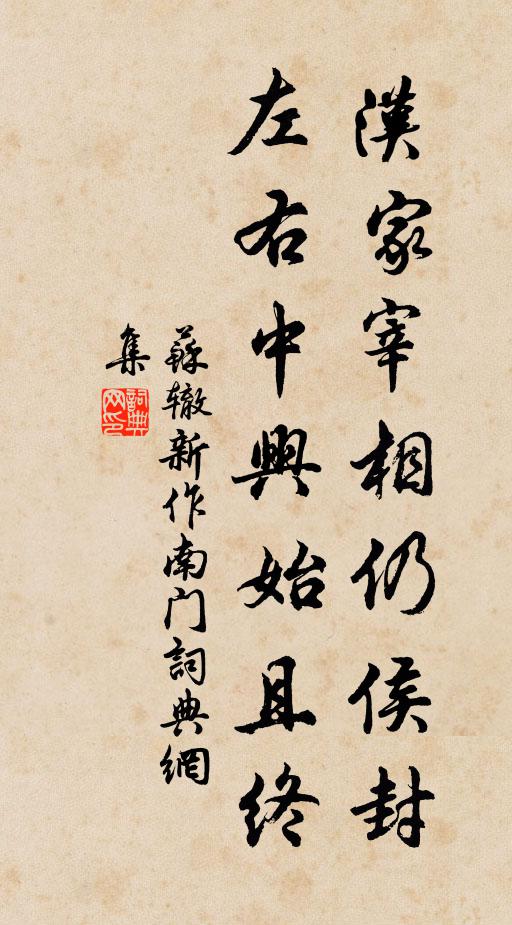 漢家宰相仍侯封
左右中興始且終
蘇辙新作南门詞典網
集
詞典网印